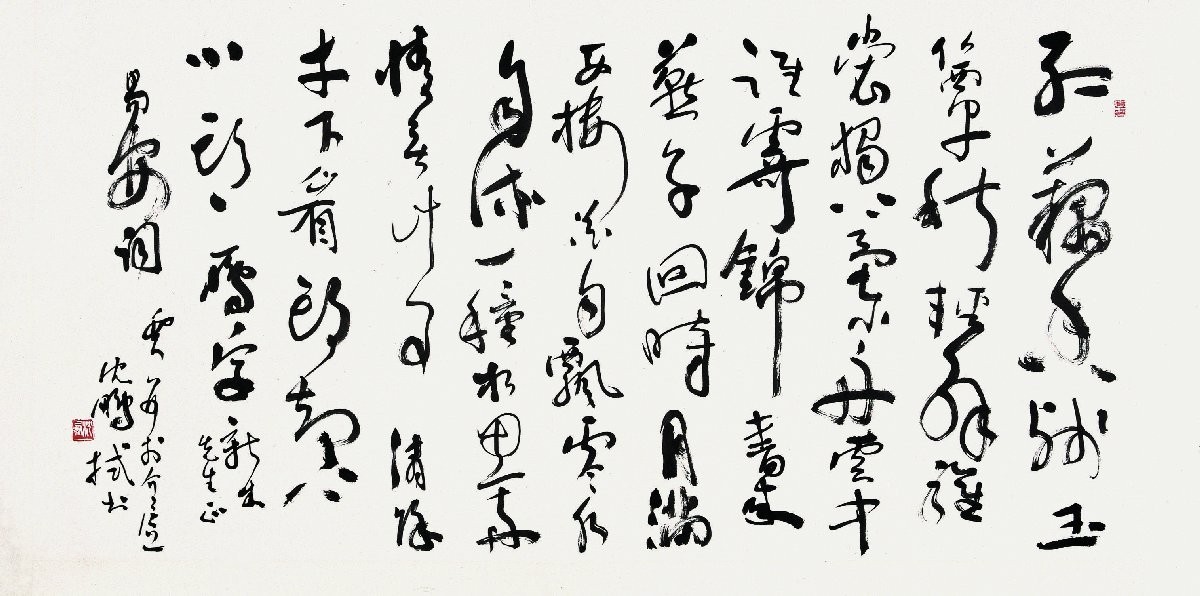 紅藕香殘玉
簟秋輕解羅
裳獨上蘭舟雲中
誰寄錦書來
燕子回時月滿
西樓花自飄零水
自流一種相思兩
情無計可消除
才下眉頭却上
心頭、雁字新木
先生正
易安詞
沈鵬拭書